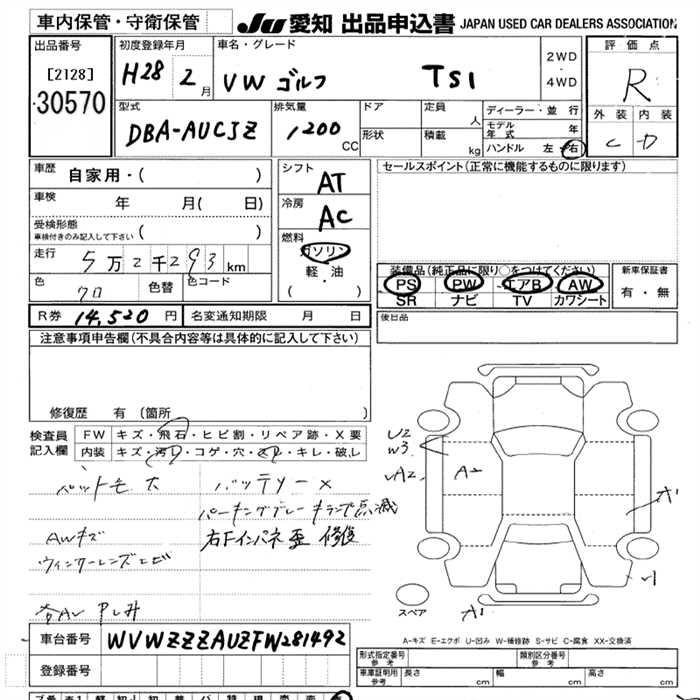 車内保管・守衛保管
JU 愛知 出品申込書 JAPAN USED CAR DEALERS ASSOCIATION
出品番号
[2128]
30570
初度登録年月
H28 2月
車名・グレード
VW ゴルフ TSI
2WD
・
4WD
評価点
R
外装 内装
C D
型式
DBA-AUCJZ
排気量
1,200 CC
ドア
形状
定員 人
積載 kg
ディーラー・並行
モデル年式 年
ハンドル 左・右
車歴 自家用・( )
車検 年 月( 日)
受検形態
車検付きのみ記入して下さい ( )
走行 5万2千293km
色 クロ
色替
色コード
シフト AT
冷房 AC
燃料
ガソリン
軽・油
( ・ )
セールスポイント(正常に機能するものに限ります)
装備品(純正品に限り○をつけてください)
PS PW エアB AW
SR ナビ TV カワシート
新車保証書
有・無
R券 14,520円
名変通知期限 月 日
後日品
注意事項申告欄(不具合内容等は具体的に記入して下さい)
修復歴 有(箇所
検査員
記入欄
FW キズ・飛石・ヒビ割・リペア跡・X要
内装 キズ・汚れ・コゲ・穴・スレ・キレ・破レ
ペット毛 大
バッテリー×
パーキングブレーキランプ点滅
AWキズ
右Fインパネ歪 修復
U2
W3
A2
A1
スペア
A-キズ E-エクボ U-凹み W-補修跡 S-サビ C-腐食 XX-交換済
車台番号 WVWZZZAUZFW281492
登録番号
形式指定番号
参考
類別区分番号
参考
車庫証明用
参考
長さ cm 幅 cm 高さ cm